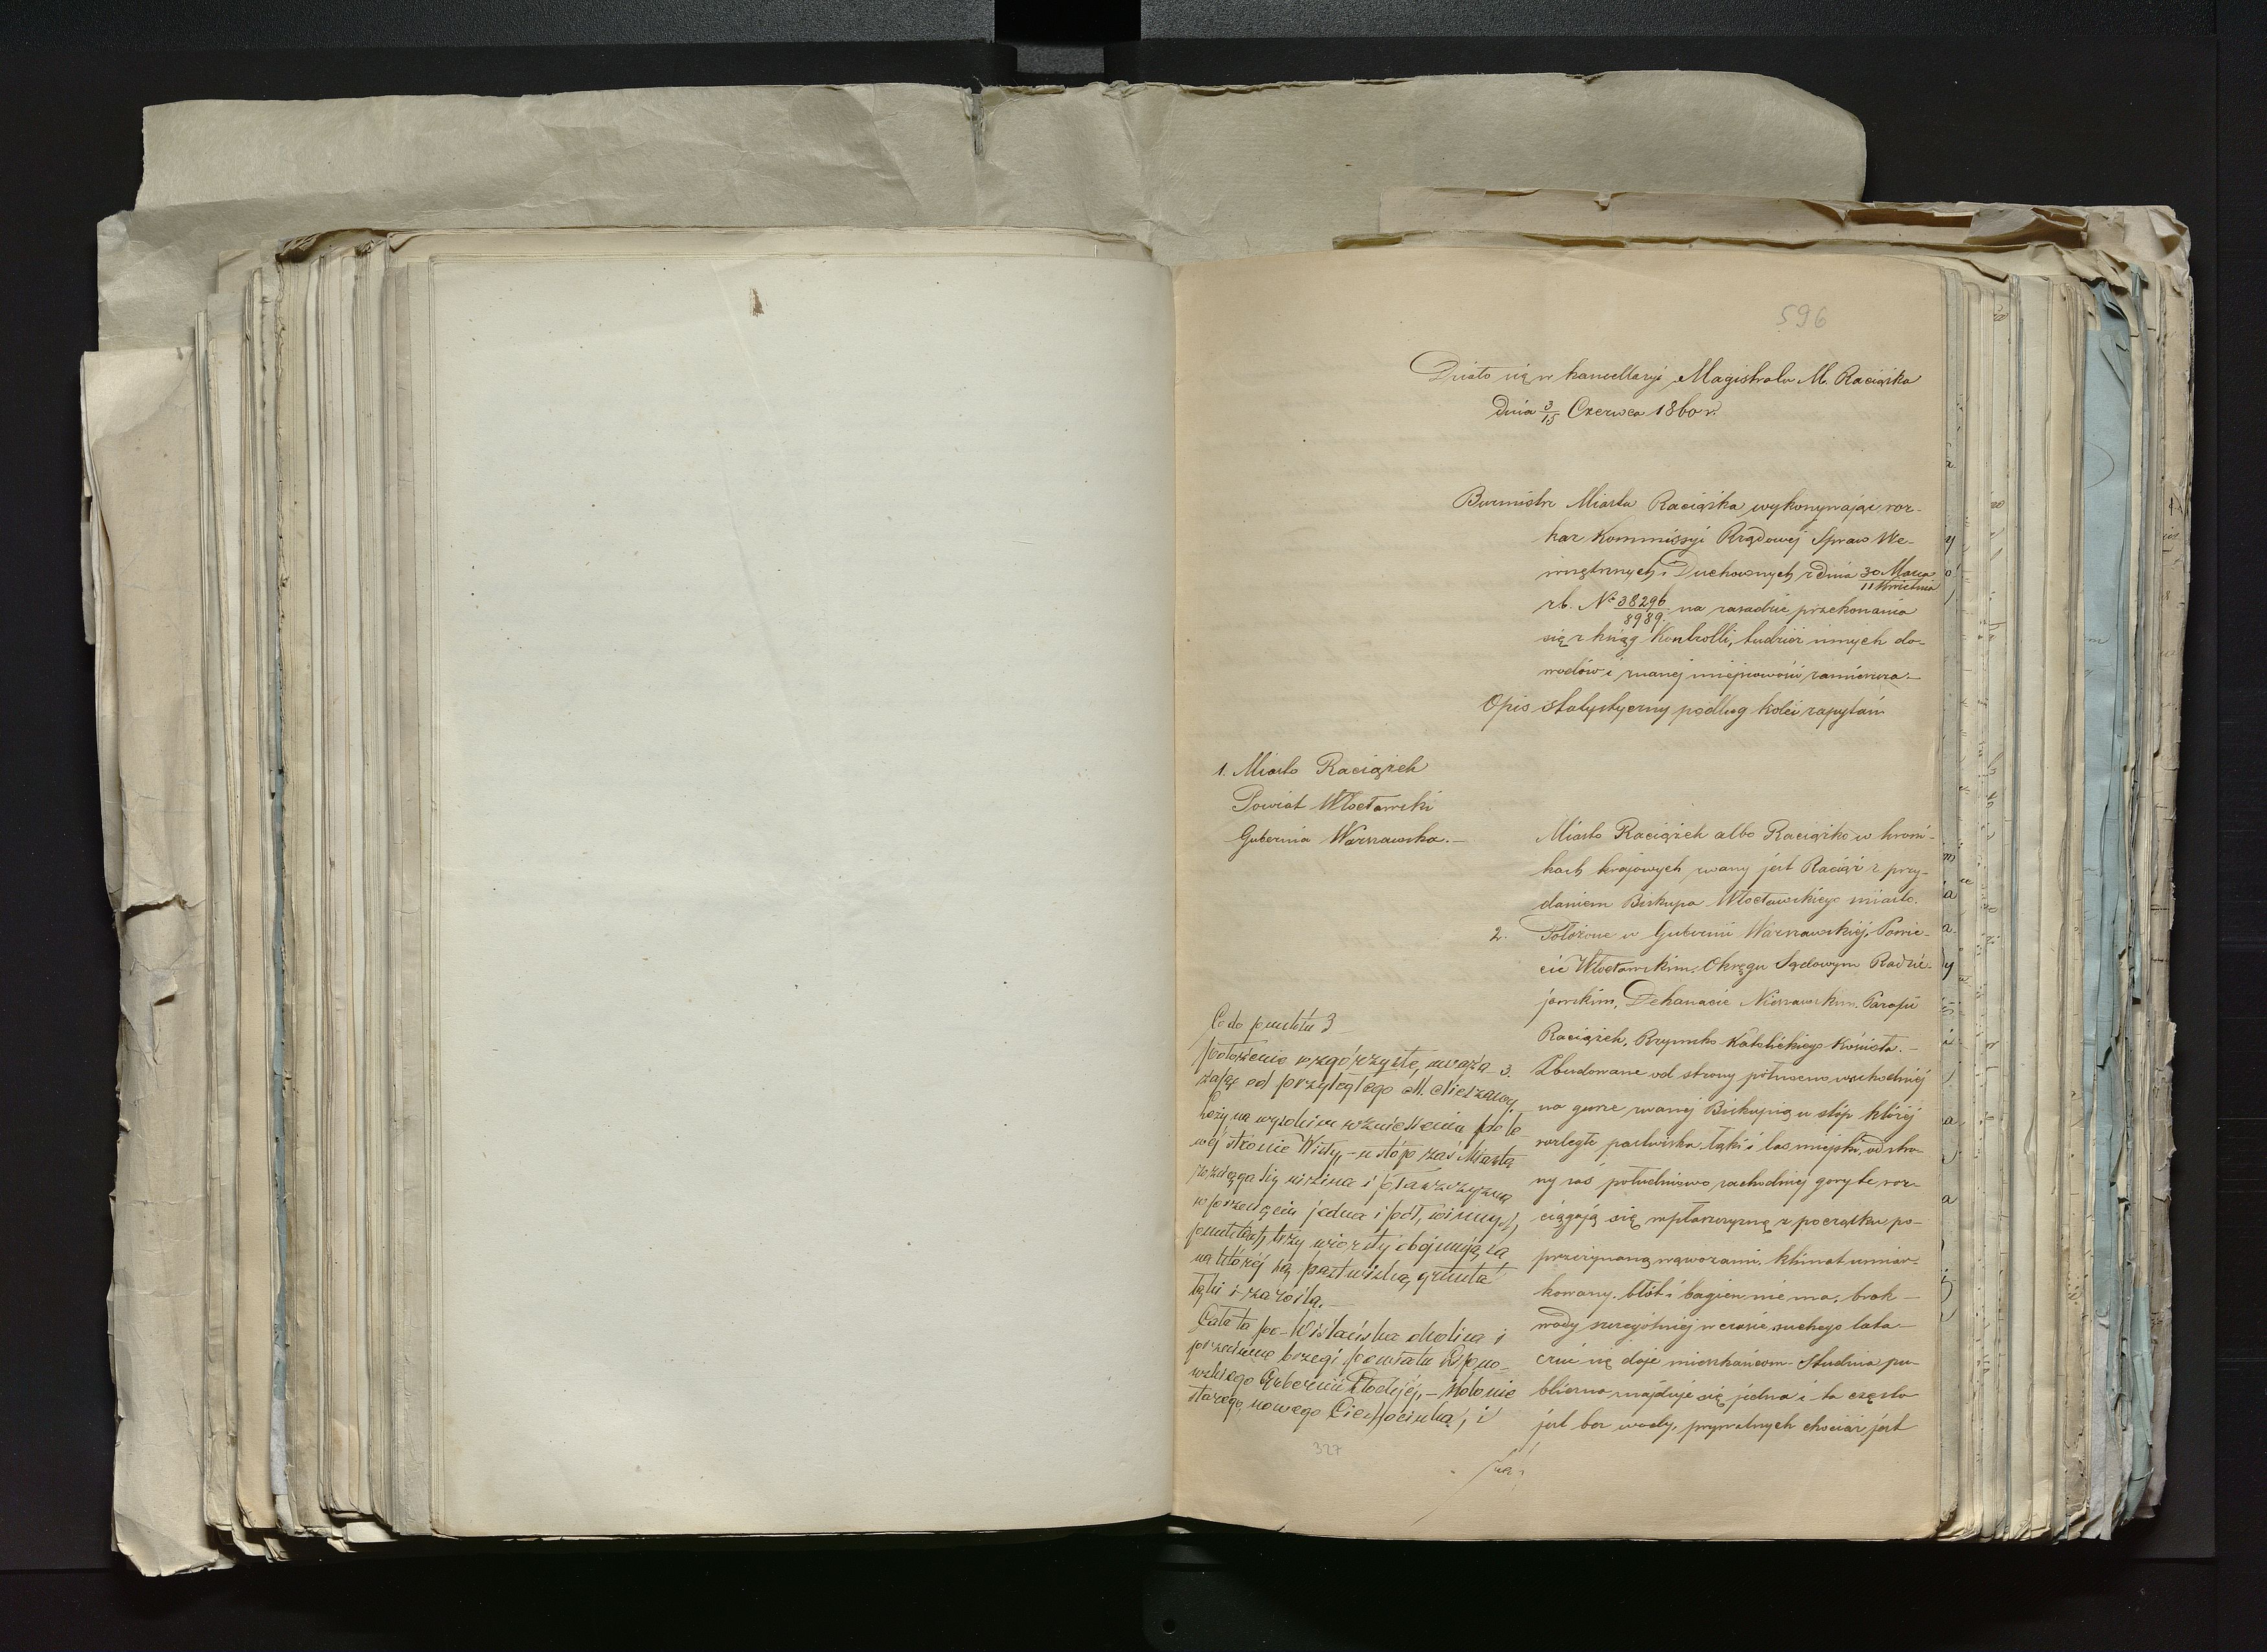 596
Działo się w kancellaryi Magistratu M. Raciążka
dnia 3/15 Czerwca 1860 r.
Burmistrz Miasta Raciążka wykonywając roz-
kaz Kommissyi Rządowej Spraw We-
wnętrznych i Duchownych z dnia 30 Marca / 11 Kwietnia
r.b. No 38296/8989 na zasadzie przekonania
się z ksiąg Kontrolli, tudzież innych do-
wodów i znanej miejscowości zamieszcza.—
Opis statystyczny podług kolei zapytań
1. Miasto Raciążek
Powiat Włocławski
Gubernia Warszawska.—
Miasto Raciążek albo Raciążko w kroni-
kach krajowych zwany jest Raciąż z przy-
daniem Biskupa Włocławskiego miasto.
2. Położone w Gubernii Warszawskiej, Powie-
cie Włocławskim, Okręgu Sądowym Radzie-
jewskim, Dekanacie Nieszawskim Parafii
Raciążek, Rzymsko Katolickiego Kościoła.—
3. Zbudowane od strony północno wschodniej
na górze zwanej Biskupią u stóp której
rozległe pastwiska łąki i las miejski, od stro-
ny zaś południowo zachodniej góry te roz-
ciągają się w płaszczyznę z początku po-
przerzynaną wąwozami. klimat umiar-
kowany. błót i bagien nie ma, brak
wody szczególniej w czasie suchego lata
czuć się daje mieszkańcom. Studnia pu-
bliczna znajduje się jedna i ta często
jest bez wody, prywatnych chociaż jest
Co do punktu 3
położenie wzgórzyste, uważa-
jąc od przyległego M. Nieszawy.
Leży na wysokim wzniesieniu po le-
wej stronie Wisły,- u stóp zaś Miasta
rozciąga się nizina i płaszczyzna
w przecięciu jedna i pół, w innych
punktach trzy wiorsty obejmująca
na której są pastwiska, grunta
łąki i zarośla.—
Cała ta po-Wiślańska okolica i
przeciwne brzegi powiatu Lipno-
wskiego Gubernii Płockiej,- kolonie
starego, nowego Ciechocinka, i
327